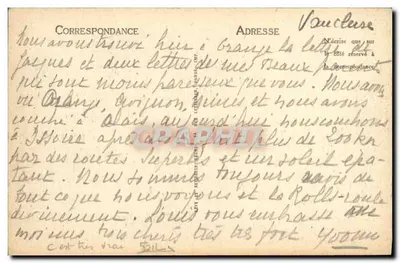 CORRESPONDANCE ADRESSE Vaucluse
Nous avons trouvé hier à Orange la lettre de
Jacques et deux lettres de mes beaux parents
qui sont moins paresseux que vous. Nous avons
vu Orange Avignon, Nîmes et nous avons
couché à Alais, aujourd'hui nous couchons
à Issoire après avoir fait plus de 200 km
par des routes superbes et un soleil épa-
tant. Nous sommes toujours ravis de
tout ce que nous voyons et la Rolls roule
divinement. Louis vous embrasse
moi mes trois chéris très très fort Yvonne
c'est très vrai